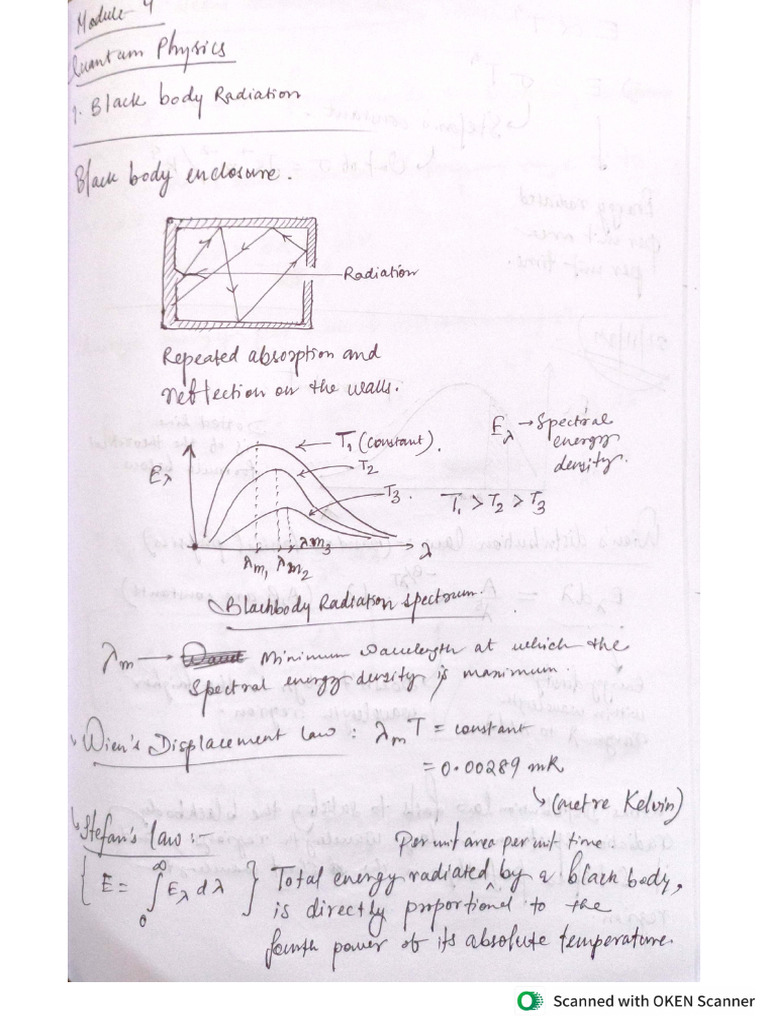 Module-4
Quantum Physics
1. Black body Radiation
Black body enclosure.
Radiation
Repeated absorption and
reflection on the walls.
Eλ → Spectral
energy
density.
T1 (constant).
T2
T3.
Eλ
T1 > T2 > T3
λm3
λ
λm1 λm2
Blackbody Radiation spectrum.
λm → Minimum wavelength at which the
spectral energy density is maximum.
Wien's Displacement law : λm T = constant
= 0.00289 mK
↳ (metre Kelvin)
↳ Stefan's law :-
Per unit area per unit time
{ E = ∫₀^∞ Eλ dλ } Total energy radiated by a black body,
is directly proportional to the
fourth power of its absolute temperature.
Scanned with OKEN Scanner